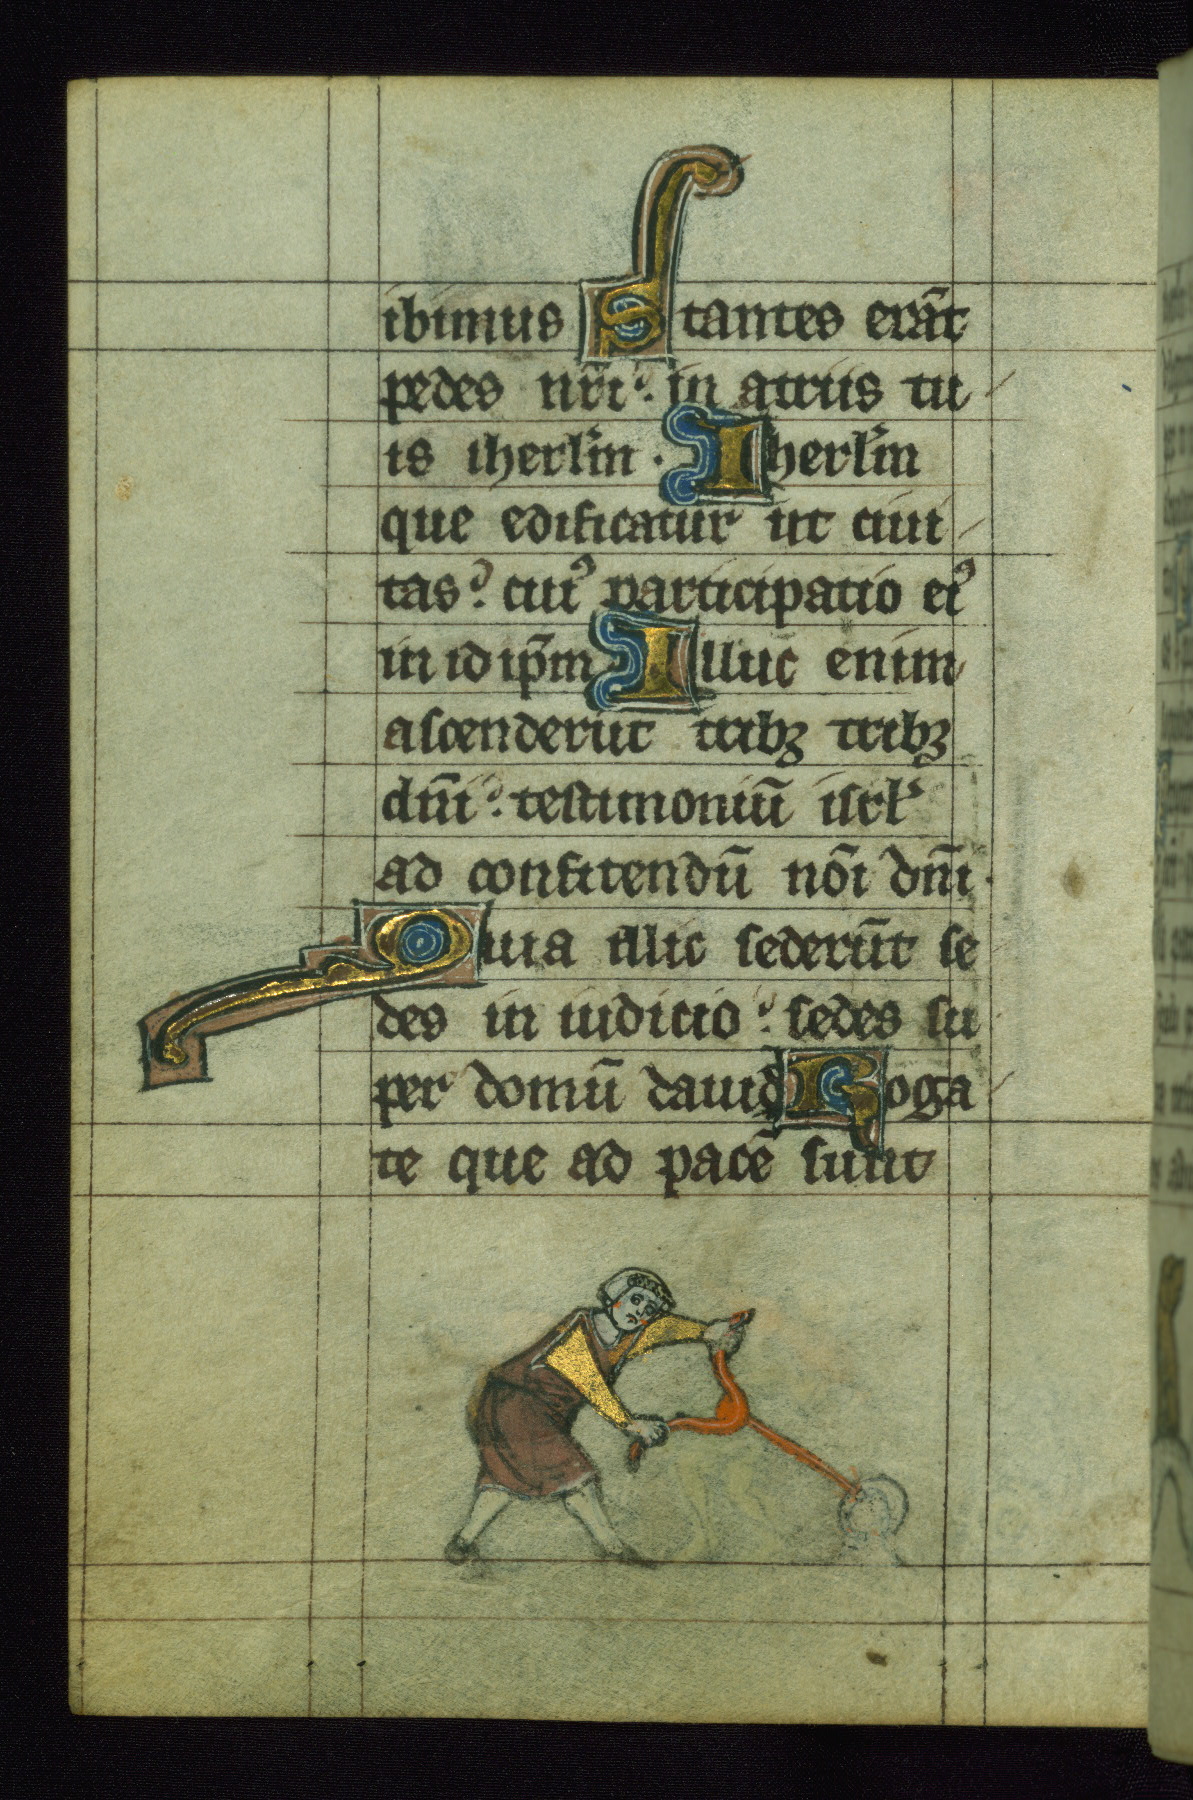 ibimus Stantes erāt
pedes nr̄i. in atriis tu
is iherl̄m. Iherl̄m
que edificatur ut ciui
tas. cui᾽ participatio ei᾽
in id ip̄m Illuc enim
ascenderūt tribꝫ tribꝫ
dn̄i. testimoniū isrl᾽
ad confitendū nōi dn̄i.
Quia illic sederūt se
des in iudicio. sedes su
per domū dauid Roga
te que ad pacē sunt